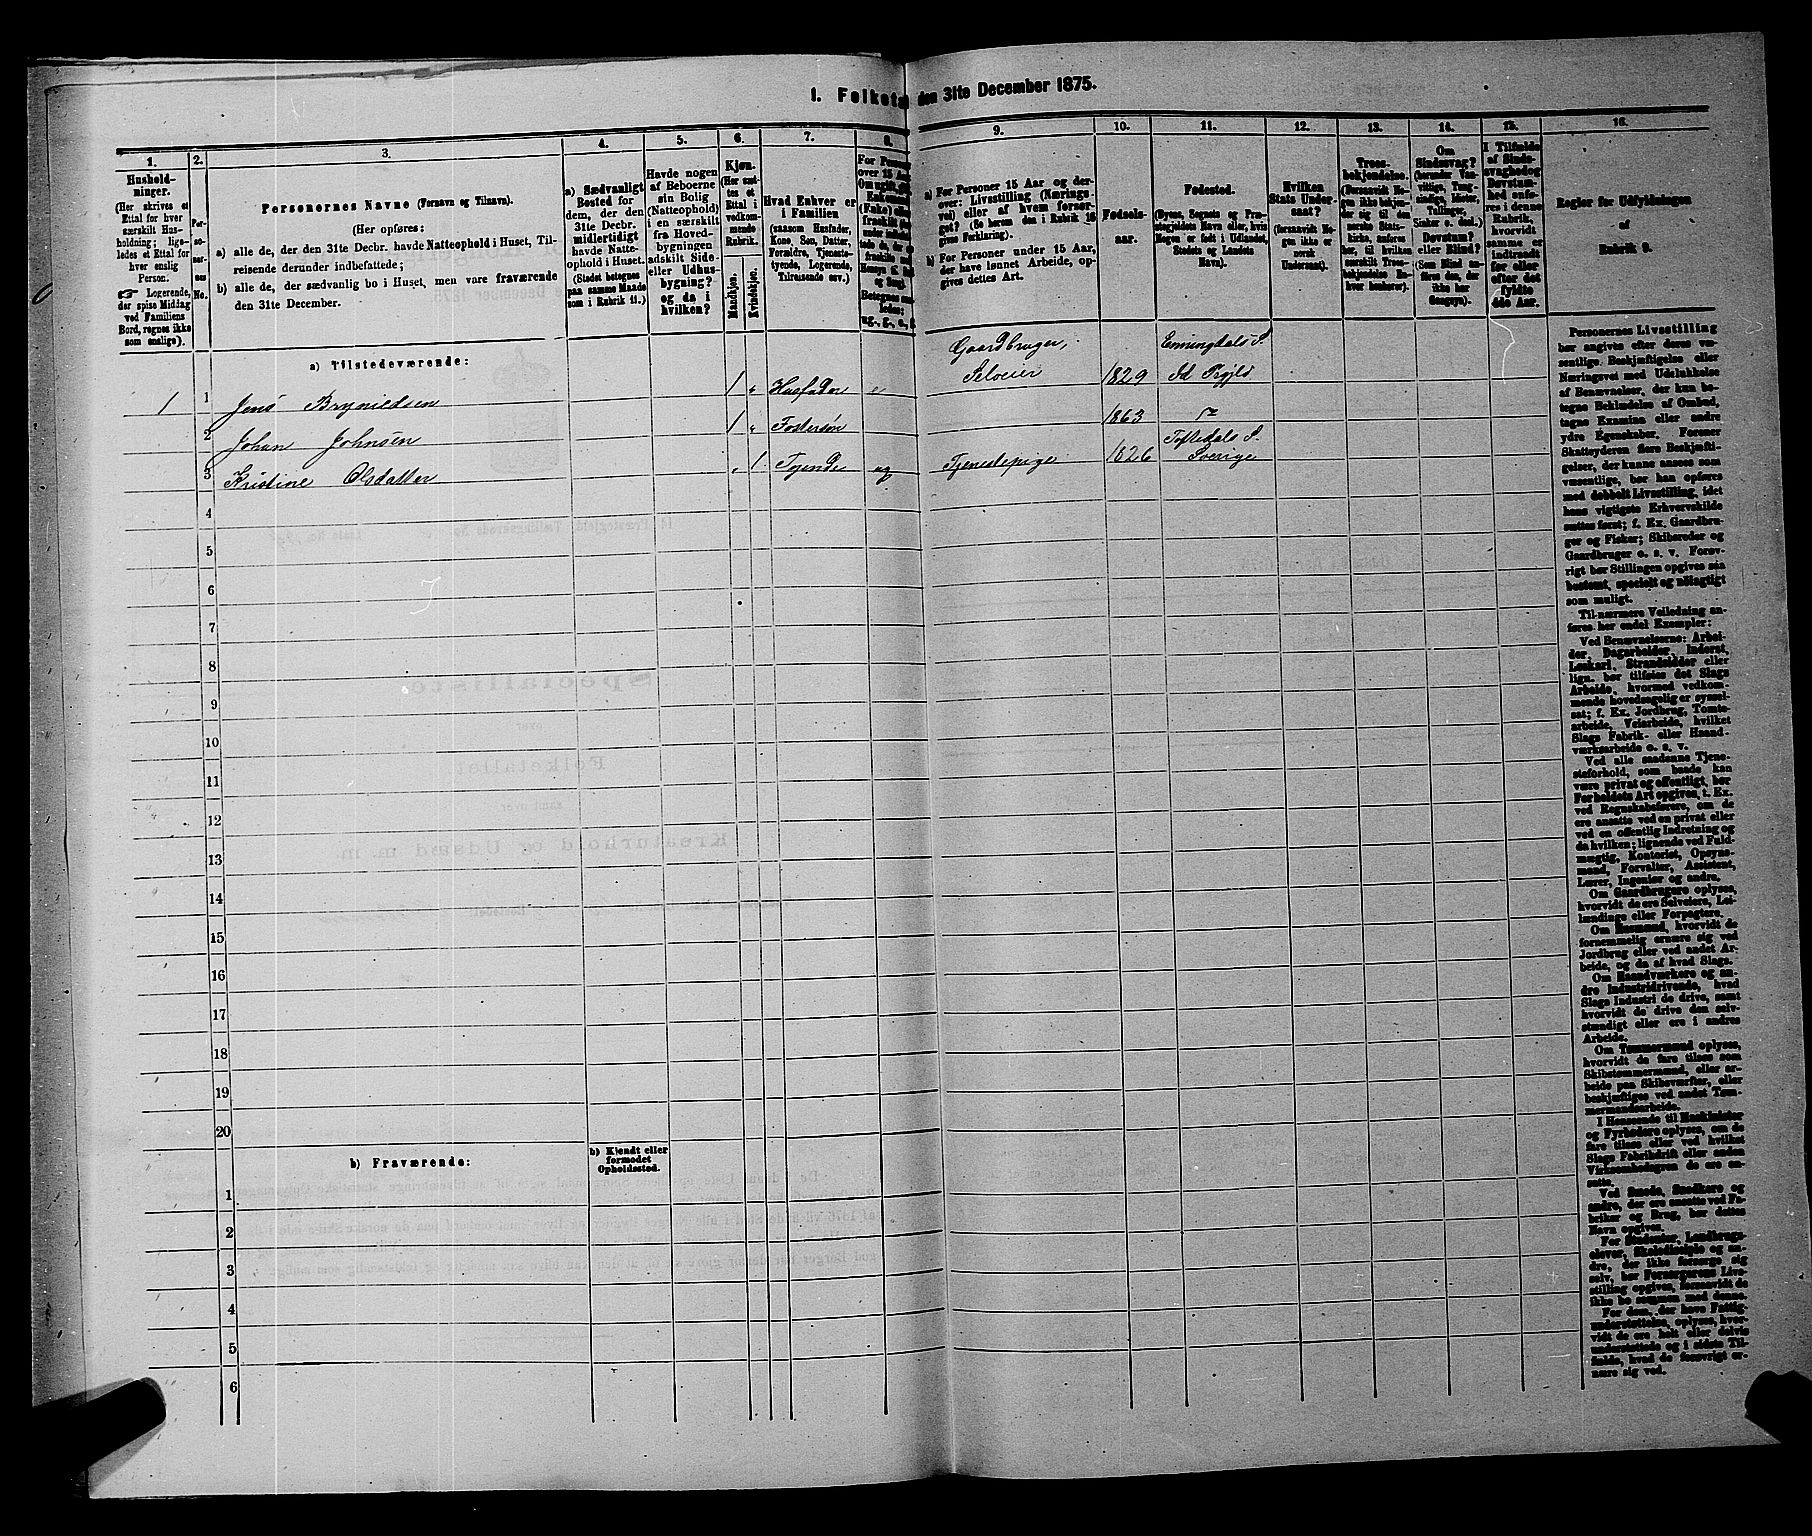 1. Folketal den 31te December 1875.
1.
2.
3.
4.
5.
6.
7.
8.
9.
10.
11.
12.
13.
14.
15.
16.
Hushold-
ninger.
(Her skrives et
Ettal for hver
særskilt Hus-
holdning; lige-
ledes et Ettal for
hver enslig
Person.
☞ Logerende,
der spise Middag
ved Familiens
Bord, regnes ikke
som enslige).
Per-
so-
ner-
nes
No.
Personernes Navne (Fornavn og Tilnavn).
(Her opføres:
a) alle de, der den 31te Decbr. havde Natteophold i Huset, Til-
reisende derunder indbefattede;
b) alle de, der sædvanlig bo i Huset, men vare fraværende
den 31te December.
a) Sædvanligt
Bosted for
dem, der den
31te Decbr.
midlertidigt
havde Natte-
ophold i Huset.
(Stedet betegnes
paa samme Maade
som i Rubrik 11.)
Havde nogen
af Beboerne
sin Bolig
(Natteophold)
i en særskilt
fra Hoved-
bygningen
adskilt Side-
eller Udhus-
bygning?
og da i
hvilken?
Kjøn.
(Her sæt-
tes et
Ettal i
vedkom-
mende
Rubrik.
Mandkjøn.
Kvindekjøn.
Hvad Enhver er
i Familien
(saasom Husfader,
Kone, Søn, Datter,
Forældre, Tjeneste-
tyende, Logerende,
Tilreisende osv.)
a) For Personer 15 Aar og der-
over: Livsstilling (Nærings-
vei) eller af hvem forsør-
get? (Se herom den i Rubrik 16
givne Forklaring).
b) For Personer under 15 Aar,
der have lønnet Arbeide, op-
gives dettes Art.
Fødsels-
aar.
Fødested.
(Byens, Sognets og Præ-
stegjeldets Navn eller, hvis
Nogen er født i Udlandet,
Stedets og Landets
Navn).
Hvilken
Stats Under-
saat?
(forsaavidt No-
gen ikke er
norsk
Undersaat).
Troes-
bekjendelse.
(Forsaavidt No-
gen ikke bekjen-
der sig til den
norske Stats-
kirke, anføres
her, til hvilken
særskilt Troes-
bekjendelse En-
hver henhører).
Om
Sindssvag?
(herunder Van-
vittige, Tung-
sindige, Idioter,
Tullinger,
Sinker o. desl.)
Døvstum?
eller Blind?
(Som Blind an-
føres den, der
ikke har
Gangsyn).
I Tilfælde
af Sinds-
svaghed og
Døvstum-
hed anfø-
res i denne
Rubrik,
hvorvidt
samme er
indtraadt
før eller
efter det
fyldte
4de Aar.
Regler for Udfyldningen
af
Rubrik 9.
a) Tilstedeværende:
1 1 Jens Brynildsen 1 " Husfader e Gaardbruger, Seloeier 1829 Enningdals S. Id Prgjld
2 Johan Johnsen 1 " Fostersøn 1863 do
3 Kristine Olsdatter " 1 Tjende ug Tjenestepige 1826 Toftedals S. Sverige
4
5
6
7
8
9
10
11
12
13
14
15
16
17
18
19
20
b) Fraværende:
b) Kjendt eller
formodet
Opholdssted.
1
2
3
4
5
6
Personernes Livsstilling
bør angives efter deres væ-
sentlige Beskjæftigelse eller
Næringsvei med Udelukkelse
af Benævnelser, der kun be-
tegne Beklædelse af Ombud,
tagne Examina eller andre
ydre Egenskaber. Forener
Skatteyderen flere Beskjæf-
tigelser, der kunne ansees som
væsentlige, bør han opføres
med dobbelt Livsstilling, idet
hans vigtigste Erhvervskilde
sættes først; f. Ex. Gaardbru-
ger og Fisker; Skibsreder og
Gaardbruger o. s. v. Forøv-
rigt bør Stillingen opgives saa
bestemt, specielt og nøiagtigt
som muligt.
Til nærmere Veiledning an-
føres her endel Exempler:
Ved Benævnelserne: Arbei-
der, Dagarbeider, Inderst,
Løskarl, Strandsidder eller
lign. bør tilføies det Slags
Arbeide, hvormed vedkom-
mende hovedsagelig er syssel-
sat; f. Ex. Jordbrug, Tomte-
arbeide, Veiarbeide, hvilket
Slags Fabrik- eller Haand-
værksarbeide o. s. v.
Ved alle saadanne Tjene-
steforhold, som baade kan
være privat og offentligt, bør
Forholdets Art opgives, f. Ex.
ved Regnskabsførere, om de
ere ansatte ved en privat eller
ved en offentlig Indretning og
da hvilken; lignende ved Fuld-
mægtig, Kontorist, Opsyns-
mand, Forvalter, Assistent,
Lærer, Ingeniør og andre.
Om Gaardbrugere oplyses,
hvorvidt de ere Selveiere, Lei-
lændinge eller Forpagtere.
Om Husmænd, hvorvidt de
fornemmelig ernære sig ved
Jordbrug eller ved andet Ar-
beide, og da af hvad Slags.
Om Haandværkere og an-
dre Industridrivende, hvad
Slags Industri de drive, samt
hvorvidt de drive den selv-
stændigt eller ere i andres
Arbeide.
Om Tømmermænd oplyses,
hvorvidt de fare tilsøs som
Skibstømmermænd, eller ar-
beide paa Skibsværfter, eller
beskjæftiges ved andet Tøm-
mermandsarbeide.
I Henseende til Maskinister
og Fyrbødere oplyses, om de
fare tilsøs eller ved hvilket
Slags Fabrikdrift eller anden
Virksomhed de ere an-
satte.
Ved Smede, Snedkere og
andre, der ere ansatte ved Fa-
briker og Brug, bør dettes
Navn opgives.
For Studenter, Landbrugs-
elever, Skoledisciple og an-
dre, der ikke forsørge sig
selv, bør Forsørgerens Livs-
stilling opgives, forsaavidt de
ikke bo sammen med denne.
For dem, der have Fattig-
understøttelse, oplyses, hvor-
vidt de ere helt eller delvis
understøttede og i sidste Til-
fælde, hvad de forøvrigt er-
nære sig ved.